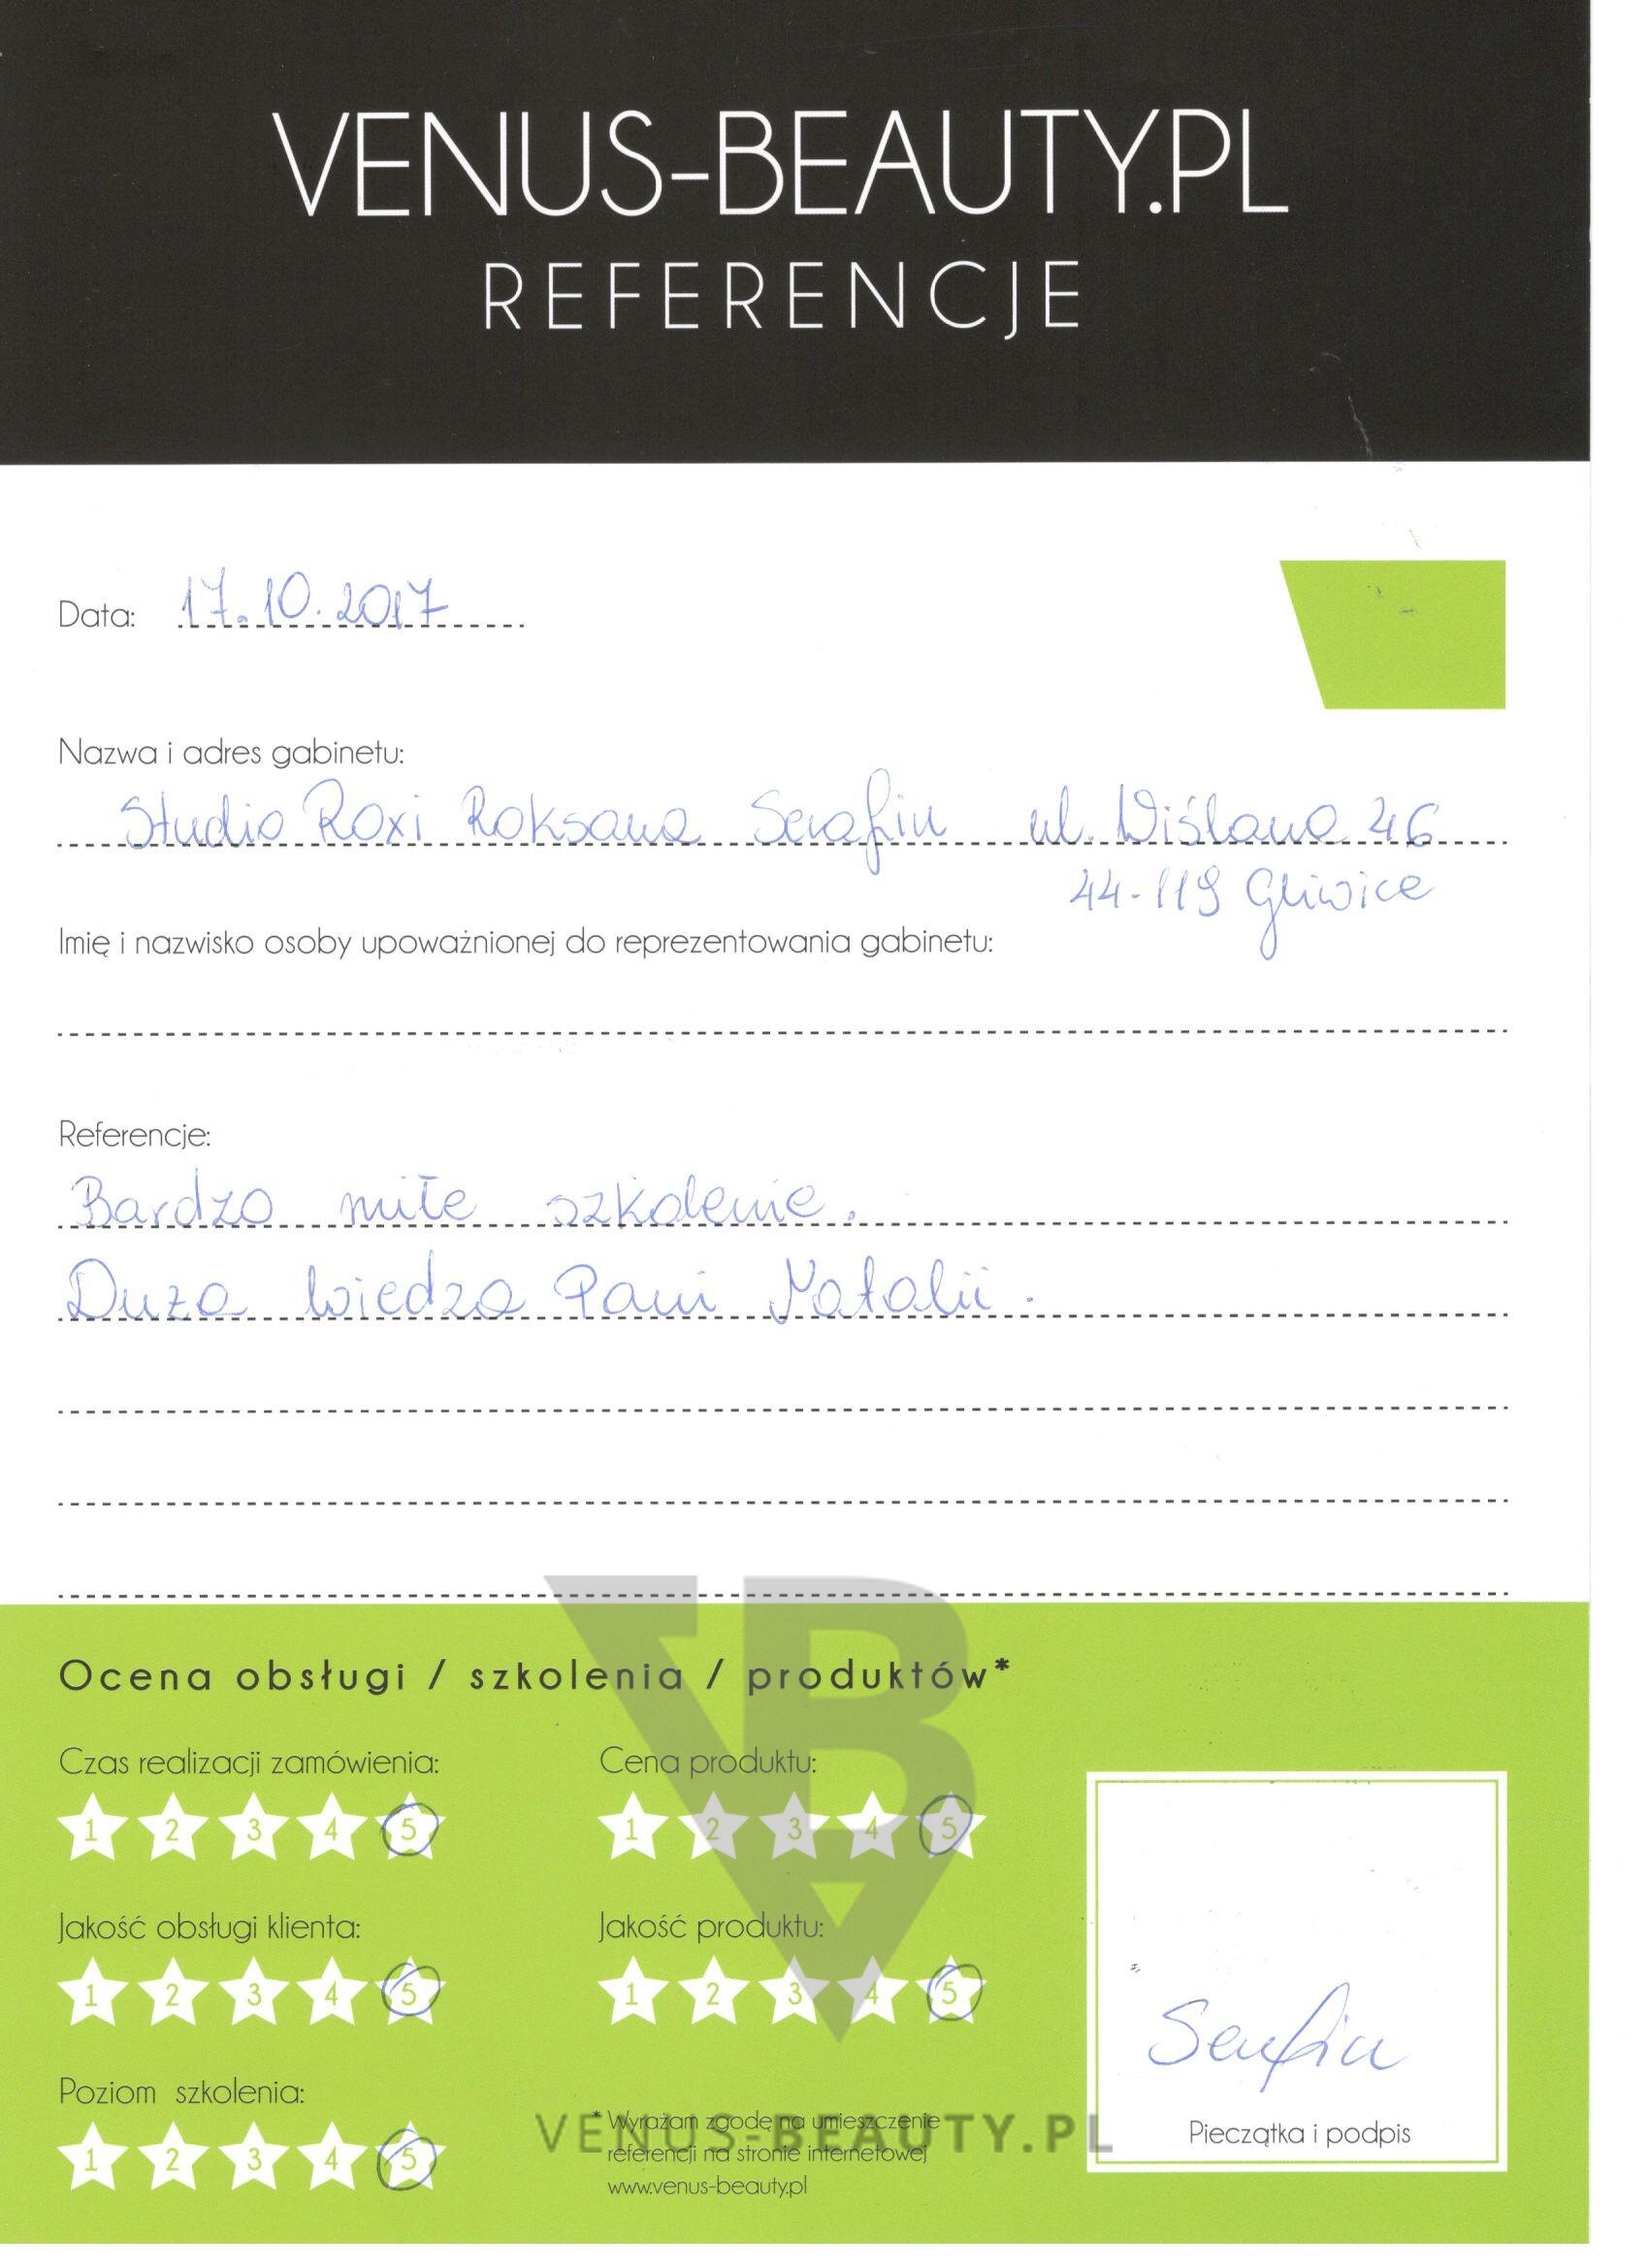 VENUS-BEAUTY.PL
REFERENCJE
Data: 17.10.2017
Nazwa i adres gabinetu:
Studio Roxi Roksana Serafin ul. Wiślana 46
44-119 Gliwice
Imię i nazwisko osoby upoważnionej do reprezentowania gabinetu:
Referencje:
Bardzo miłe szkolenie.
Duża wiedza Pani Natalii.
Ocena obsługi / szkolenia / produktów*
Czas realizacji zamówienia:
1 2 3 4 5
Cena produktu:
1 2 3 4 5
Jakość obsługi klienta:
1 2 3 4 5
Jakość produktu:
1 2 3 4 5
Poziom szkolenia:
1 2 3 4 5
* Wyrażam zgodę na umieszczenie
referencji na stronie internetowej
www.venus-beauty.pl
VENUS-BEAUTY.PL
Serafin
Pieczątka i podpis